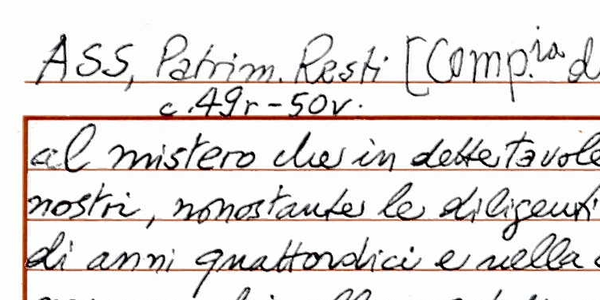 ASS, Patrim. Resti [Comp.ia d
c. 49r-50v.
al mistero che in dette tavole
nostri, nonostante le diligenti
di anni quattordici e nella